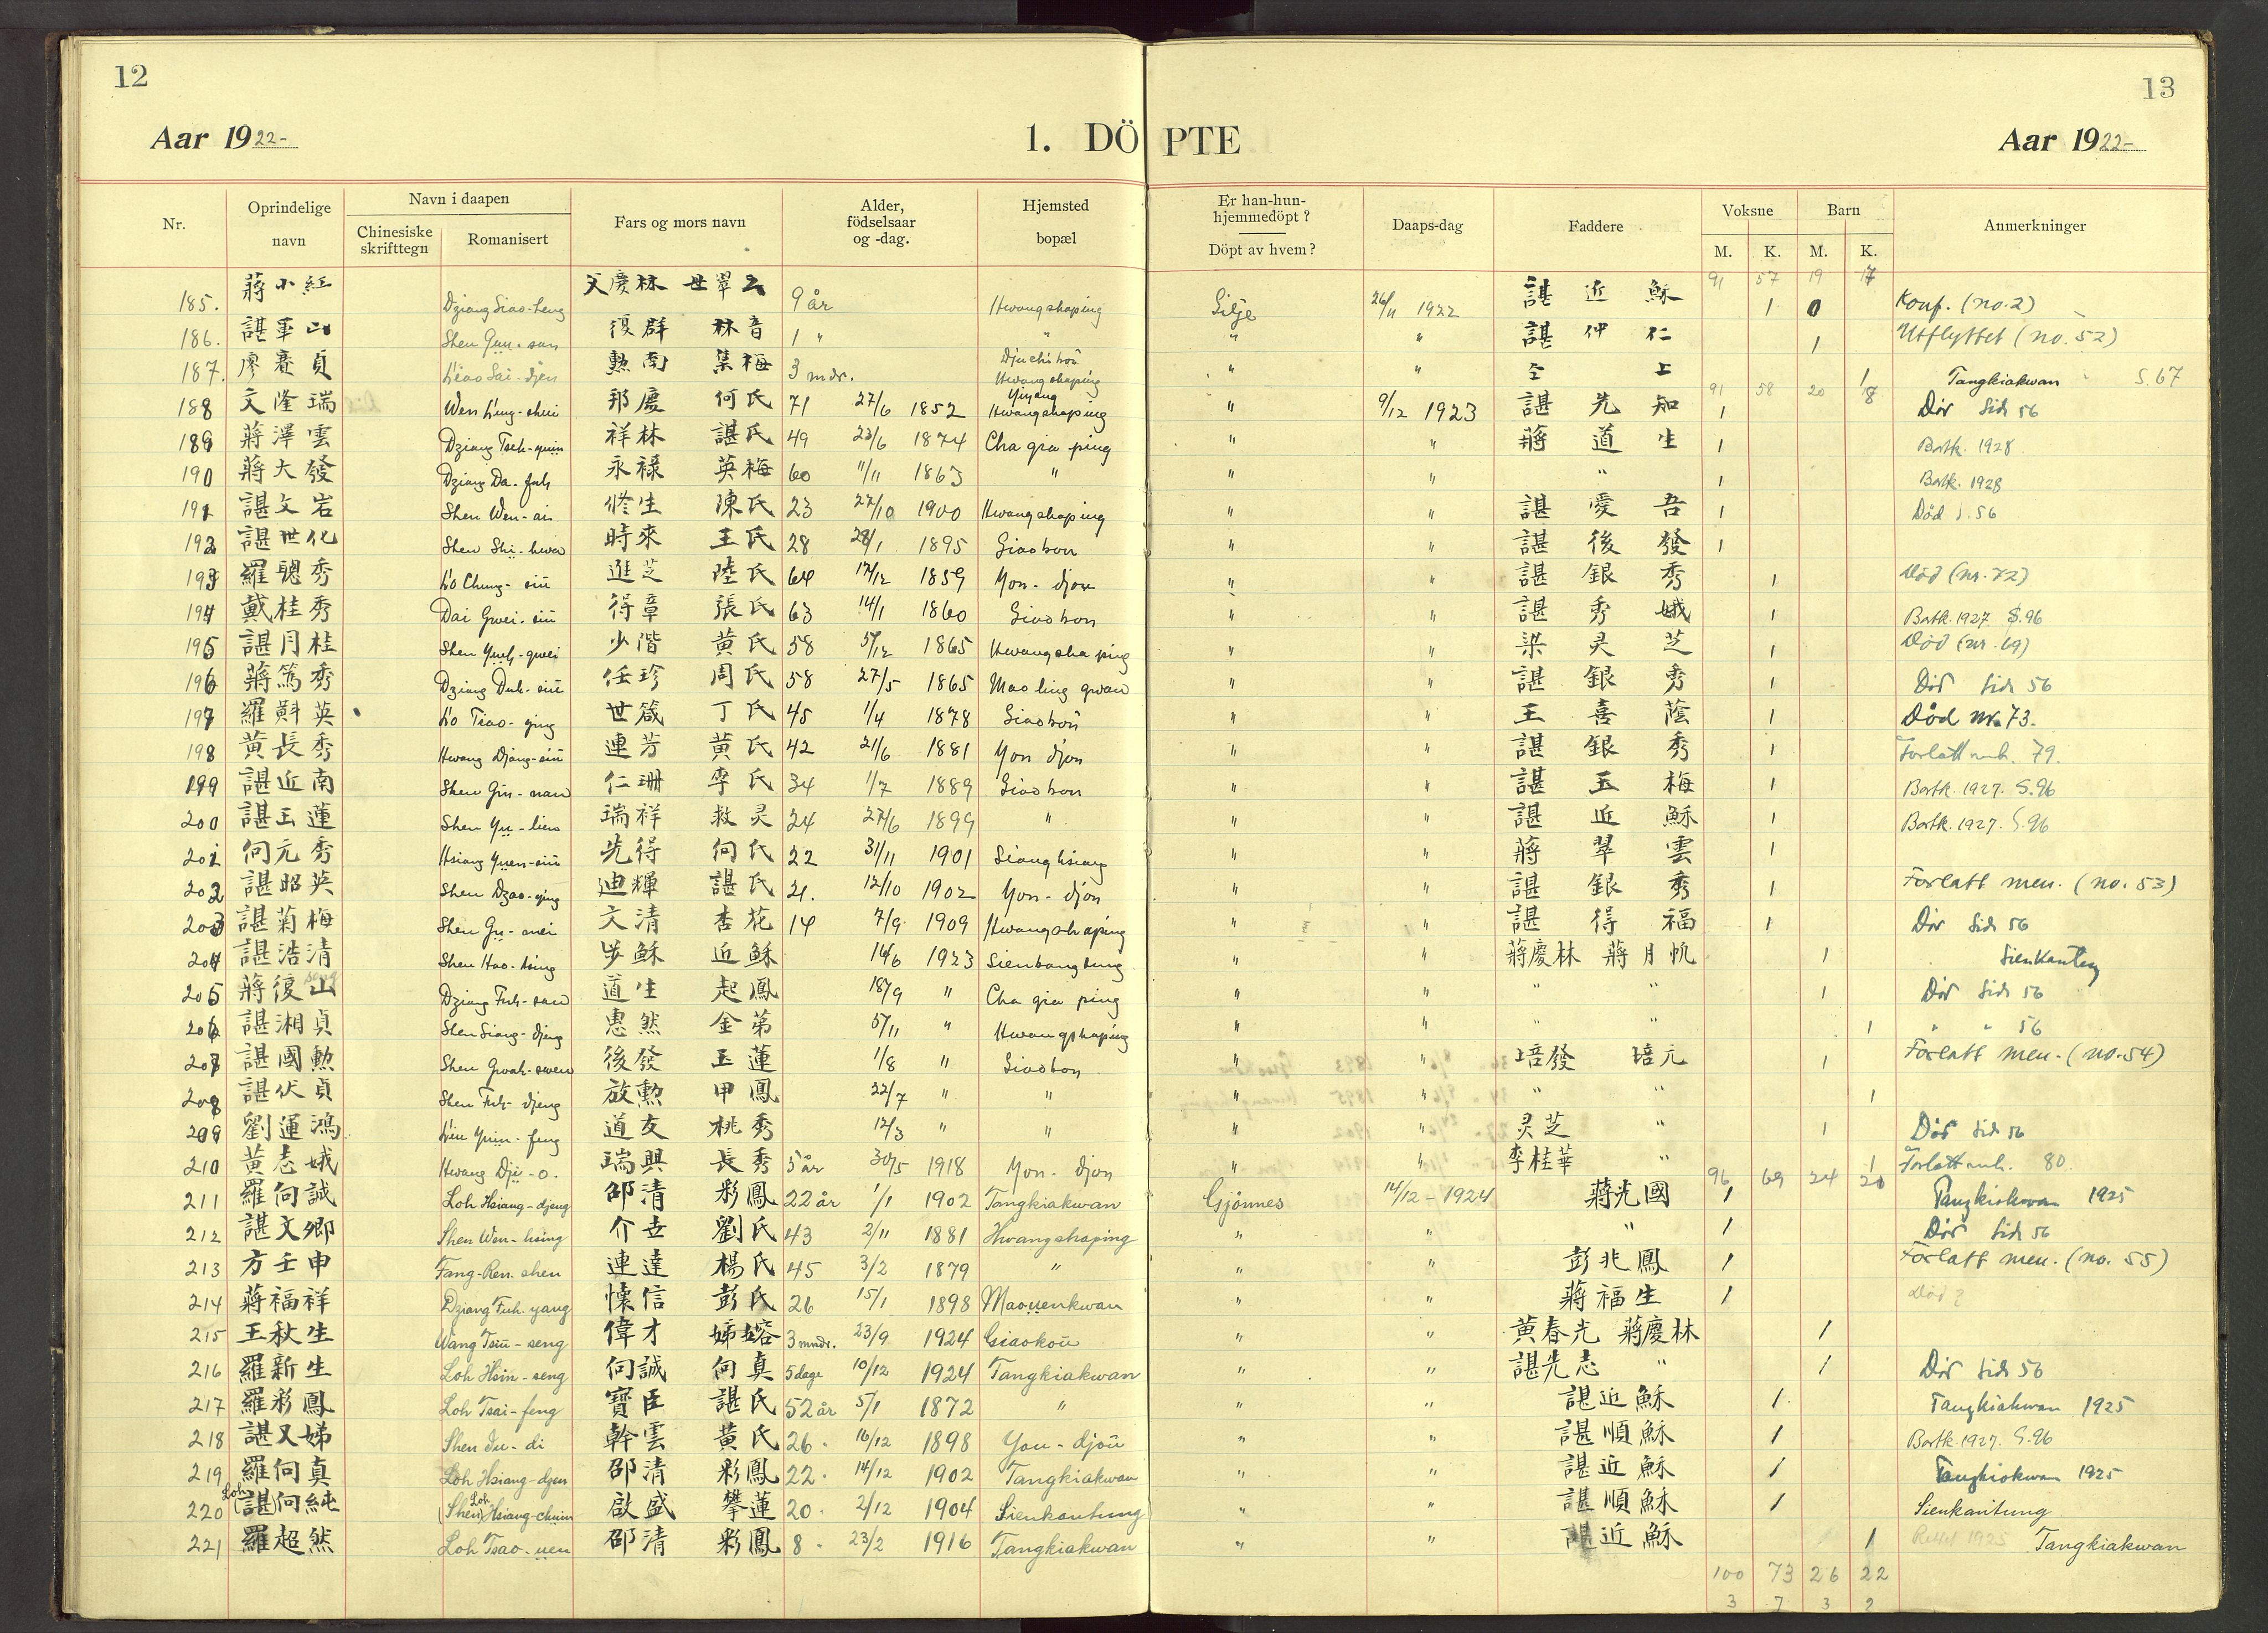 12
13
Aar 1922-
1. DÖPTE
Aar 1922-
Nr.
Oprindelige navn
Navn i daapen
Chinesiske skrifttegn
Romanisert
Fars og mors navn
Alder, födselsaar og -dag.
Hjemsted bopæl
Er han-hun-hjemmedöpt?
Döpt av hvem?
Daaps-dag
Faddere
Voksne
M. K.
Barn
M. K.
Anmerkninger
91 57 19 17
185. 蔣小紅 Dziang Siao-heng 父慶林 母翠云 9 år Hwangshaping Silje 26/11 1922 諶近穌 1 0 Konf. (no.2)
186. 諶軍山 Shen Gün-san 復群 林音 1 " " " " 諶仲仁 1 Utflyttet (no. 52)
187. 廖賽貞 Liao Sai-djen 勲南 集梅 3 mdr. Hwangshaping " " 仝上 1 Tangkiakwan S.67
91 58 20 18
188 文隆瑞 Wen Lung-shui 邦慶 何氏 71 27/6 1852 Hwangshaping " 9/12 1923 諶先知 1 Dör Side 56
189 蔣澤雲 Dziang Tseh-yuin 祥林 諶氏 49 23/6 1874 Cha gia ping " " 蔣道生 1 Bortk. 1928
190 蔣大發 Dziang Da-fuh 永祿 英梅 60 11/11 1863 " " " " 1 Bortk. 1928
191 諶文岩 Shen Wen-ai 修生 陳氏 23 27/10 1900 Hwangshaping " " 諶愛吾 1 Död S.56
192 諶世化 Shen Shi-hwa 時來 王氏 28 28/1 1895 Giaokou " " 諶後發 1
193 羅聰秀 Lo Chung-siu 進芝 陸氏 64 17/12 1859 Yon-djou " " 諶銀秀 1 Död (nr. 72)
194 戴桂秀 Dai Gwei-siu 得章 張氏 63 14/1 1860 Giaokou " " 諶秀娥 1 Bortk. 1927 S.96
195 諶月桂 Shen Yueh-gwei 少階 黃氏 58 5/12 1865 Hwangshaping " " 梁灵芝 1 Död (nr. 69)
196 蔣篤秀 Dziang Duh-siu 任珍 周氏 58 27/5 1865 Mao ling gwan " " 諶銀秀 1 Dör Side 56
197 羅斢英 Lo Tiao-ying 世箴 丁氏 45 1/4 1878 Giaokou " " 王喜蔭 1 Död nr. 73.
198 黃長秀 Hwang Djang-siu 連芳 黃氏 42 21/6 1881 Yon djou " " 諶銀秀 1 Forlatt mnh. 79.
199 諶近南 Shen Gin-nan 仁珊 李氏 34 1/7 1889 Giaokou " " 諶玉梅 1 Bortk. 1927. S.96
200 諶玉蓮 Shen Yu-lien 瑞祥 救灵 24 27/6 1899 " " " 諶近穌 1 Bortk. 1927. S.96
201 向元秀 Hsiang Yuen-siu 先得 向氏 22 31/11 1901 Sianghsiang " " 蔣翠雲 1
202 諶昭英 Shen Dzao-ying 迪輝 諶氏 21. 12/10 1902 Yon-djou " " 諶銀秀 1 Forlatt men. (no. 53)
203 諶菊梅 Shen Gu-mei 文清 杏花 14 7/9 1909 Hwangshaping " " 諶得福 1 Dör Side 56
204 諶浩清 Shen Hao-tsing 步穌 近穌 14/6 1923 Sienkangtung " " 蔣慶林 蔣月帆 1 Sienkantung
205 蔣復山 Dziang Fuh-san 道生 起鳳 18/9 " Cha gia ping " " " " 1 Dör Side 56
206 諶湘貞 Shen Siang-djeng 惠然 金弟 5/11 " Hwangshaping " " " " 1 " " 56
207 諶國勲 Shen Gwoh-swen 後發 玉蓮 1/8 " Giaokou " " 培發 培元 1 Forlatt men. (no. 54)
208 諶伏貞 Shen Fuh-djeng 放勲 甲鳳 22/7 " " " " " " 1
209 劉運鴻 Liu Yuin-feng 道友 桃秀 12/3 " " " " 灵芝 " 1 Dör Side 56
210 黃志娥 Hwang Dji-o. 瑞興 長秀 5 år 30/5 1918 Yon-djou " " 李桂華 " 1 Forlatt mnh. 80.
96 69 24 20
211 羅向誠 Loh Hsiang-djeng 邵清 彩鳳 22 år 1/1 1902 Tangkiakwan Gjönnes 14/12-1924 蔣光國 1 Tangkiakwan 1925
212 諶文鄉 Shen Wen-hsing 介玄 劉氏 43 2/11 1881 Hwangshaping " " " 1 Dör Side 56
213 方壬申 Fang-Ren-shen 連達 楊氏 45 3/2 1879 " " " 彭兆鳳 1 Forlatt men. (no. 55)
214 蔣福祥 Dziang Fuh-yang 懷信 彭氏 26 15/1 1898 Maouenkwan " " 蔣福生 1 Död?
215 王秋生 Wang Tsiu-seng 偉才 娣嫆 3 mndr. 23/9 1924 Giaokou " " 黃春光 蔣慶林 1
216 羅新生 Loh Hsin-seng 向誠 向真 5 dage 10/12 1924 Tangkiakwan " " 諶先志 " 1 Dör Side 56
217 羅彩鳳 Loh Tsai-feng 寶臣 諶氏 52 år 5/1 1872 " " " 諶近穌 1 Tangkiakwan 1925
218 諶又娣 Shen Iu-di 幹雲 黃氏 26 16/12 1898 You-djou " " 諶順穌 1 Bortk. 1927. S.96
219 羅向真 Loh Hsiang-dzen 邵清 彩鳳 22 14/12 1902 Tangkiakwan " " 諶近穌 1 Tangkiakwan 1925
220 Loh (諶向純 (Shen) Loh Hsiang-chuin 啟盛 攀蓮 20 2/12 1904 Sienkantung " " 諶順穌 1 Sienkantung
221 羅超然 Loh Tsao-uen 邵清 彩鳳 8 23/2 1916 Tangkiakwan " " 諶近穌 1 1925 Tangkiakwan
100 73 26 22
3 7 3 2